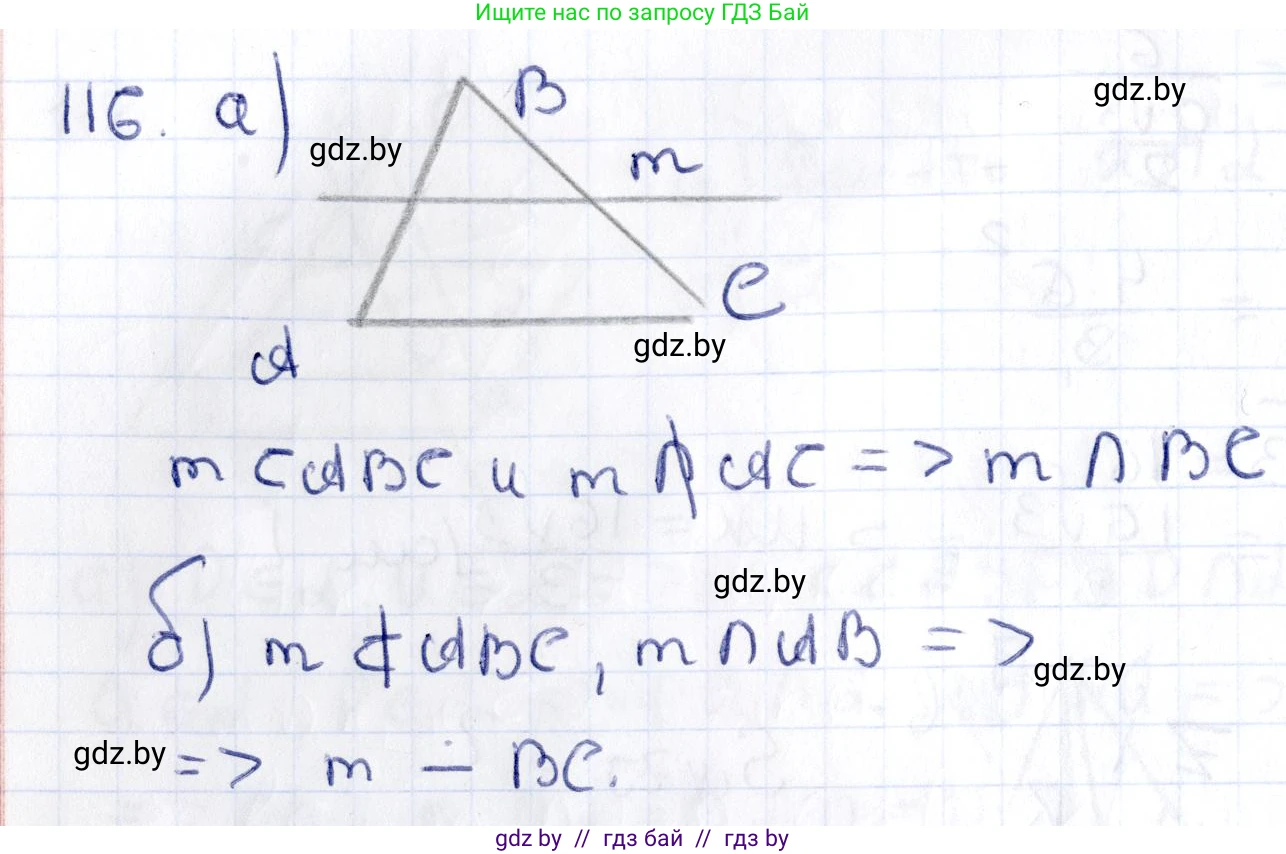 Ищите нас по запросу ГДЗ Бай
116. а)
B
m
C
A
gdz.by
gdz.by
gdz.by
m ⊂ ABC и m ∩̸ AC => m ∩ BC
gdz.by
б) m ⊄ ABC, m ∩ AB =>
gdz.by
gdz.by
=> m ∸ BC.
gdz.by // гдз бай // гдз by